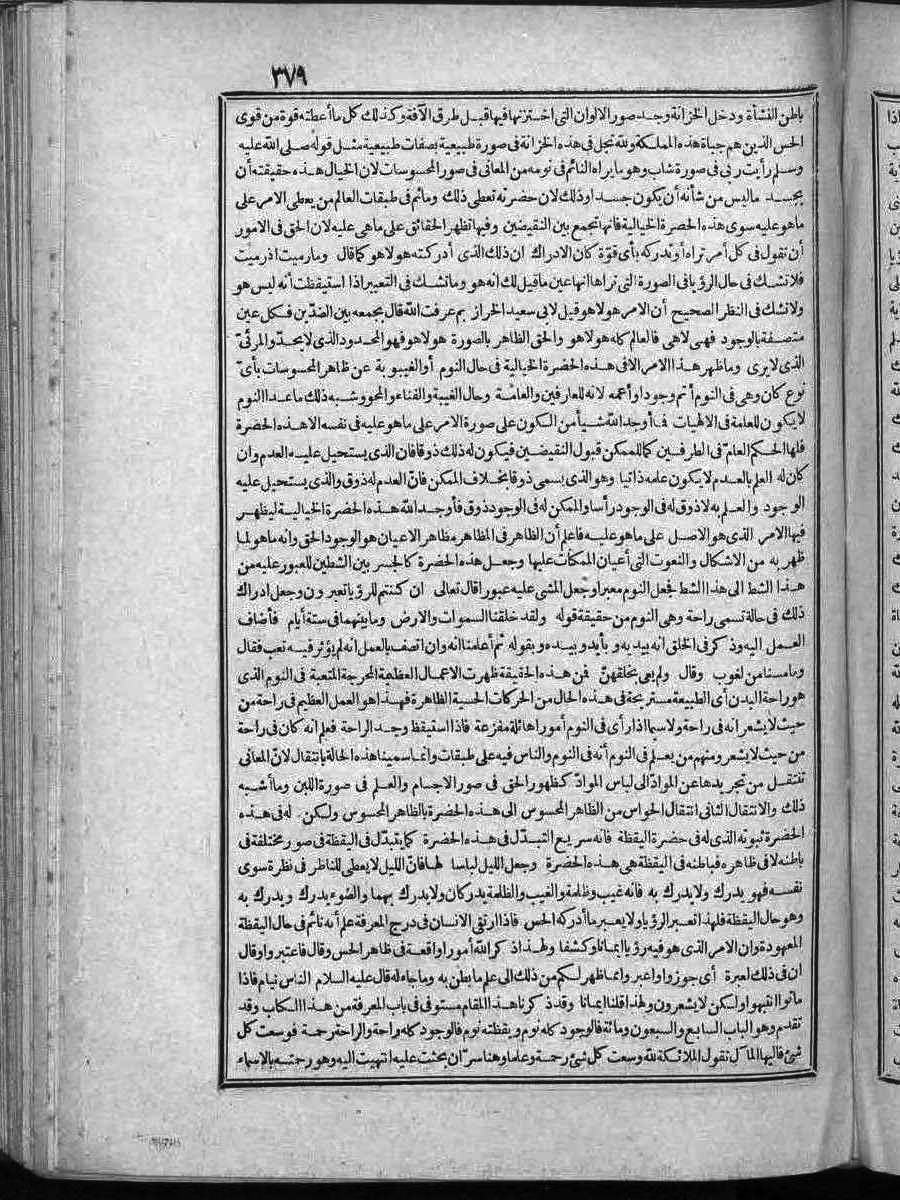 ٣٧٩
باطن النشأة ودخل الخزانة وجد صور الالوان التى اختزنتها فيها قبل طرق الآفة وكذلك كل ما أعطته قوة من قوى
الحس الذين هم جباة هذه المملكة ولله تجل فى هذه الخزانة فى صورة طبيعية بصفات طبيعية مثل قوله صلى الله عليه
وسلم رأيت ربى فى صورة شاب وهو ما يراه النائم فى نومه من المعانى فى صور المحسوسات لان الخيال هذه حقيقته أن
يجسد ماليس من شأنه أن يكون جسدا وذلك لان حضرته تعطى ذلك وماثم فى طبقات العالم من يعطى الامر على
ماهو عليه سوى هذه الحضرة الخيالية فانها تجمع بين النقيضين وفيها تظهر الحقائق على ماهى عليه لان الحق فى الامور
أن تقول فى كل أمر تراه أو تدركه بأى قوّة كان الادراك ان ذلك الذى أدركته هو لاهو كما قال وما رميت اذ رميت
فلا تشك فى حال الرؤيا فى الصورة التى تراها انها عين ما قيل لك انه هو وما تشك فى التعبير اذا استيقظت أنه ليس هو
ولا تشك فى النظر الصحيح أن الامر هو لاهو قيل لابى سعيد الخراز بم عرفت الله قال بجمعه بين الضدّين فكل عين
متصفة بالوجود فهى لاهى فالعالم كله هو لاهو والحق الظاهر بالصورة هو لاهو فهو المحدود الذى لا يحدّ والمرئىّ
الذى لا يرى وما ظهر هذا الامر الا فى هذه الحضرة الخيالية فى حال النوم أو الغيبوبة عن ظاهر المحسوسات بأىّ
نوع كان وهى فى النوم أتم وجودا وأعمه لانه للعارفين والعامّة وحال الغيبة والفناء والمحو وشبه ذلك ما عدا النوم
لا يكون للعامة فى الالهيات فما أوجد الله شيأ من الكون على صورة الامر على ماهو عليه فى نفسه الا هذه الحضرة
فلها الحكم العامّ فى الطرفين كما للممكن قبول النقيضين فيكون له ذلك ذوقا فان الذى يستحيل عليه العدم وان
كان له العلم بالعدم لا يكون علمه ذاتيا وهو الذى يسمى ذوقا بخلاف الممكن فانّ العدم له ذوق والذى يستحيل عليه
الوجود والعلم به لا ذوق له فى الوجود رأسا والممكن له فى الوجود ذوق فأوجد الله هذه الحضرة الخيالية ليظهر
فيها الامر الذى هو الاصل على ماهو عليه فاعلم أن الظاهر فى المظاهر مظاهر الاعيان هو الوجود الحق وانه ماهو لما
ظهر به من الاشكال والنعوت التى أعيان الممكنات عليها وجعل هذه الحضرة كالجسر بين الشطين للعبور عليه من
هذا الشط الى هذا الشط فجعل النوم معبرا وجعل المشى عليه عبورا قال تعالى ان كنتم للرؤيا تعبرون وجعل ادراك
ذلك فى حالة تسمى راحة وهى النوم من حقيقة قوله ولقد خلقنا السموات والارض وما بينهما فى ستة أيام فأضاف
العمل اليه وذكر فى الخلق انه بيديه وبأيد وبيده وبقوله ثم أعلمنا انه وان اتصف بالعمل انه لم يؤثر فيه تعب فقال
وما مسنا من لغوب وقال ولم يعى بخلقهنّ فمن هذه الحقيقة ظهرت الاعمال العظيمة المحرجة المتعبة فى النوم الذى
هو راحة البدن أى الطبيعة مستريحة فى هذه الحال من الحركات الحسية الظاهرة فهذا هو العمل العظيم فى راحة من
حيث لا يشعر انه فى راحة ولا سيما اذا رأى فى النوم أمورا هائلة مفزعة فاذا استيقظ وجد الراحة فعلم انه كان فى راحة
من حيث لا يشعر ومنهم من يعلم فى النوم أنه فى النوم والناس فيه على طبقات وانما سمينا هذه الحالة بانتقال لانّ المعانى
تنتقل من تجريدها عن الموادّ الى لباس الموادّ كظهور الحق فى صور الاجسام والعلم فى صورة اللبن وما أشبه
ذلك والانتقال الثانى انتقال الحواس من الظاهر المحسوس الى هذه الحضرة بالظاهر المحسوس ولكن له فى هذه
الحضرة ثبوته الذى له فى حضرة اليقظة فانه سريع التبدّل فى هذه الحضرة كما يتبدّل فى اليقظة فى صور مختلفة فى
باطنه لا فى ظاهره فباطنه فى اليقظة هى هذه الحضرة وجعل الليل لباسا لها فانّ الليل لا يعطى للناظر فى نظرة سوى
نفسه فهو يدرك ولا يدرك به فانه غيب وظلمة والغيب والظلمة يدركان ولا يدرك بهما والضوء يدرك ويدرك به
وهو حال اليقظة فلهذا تعبر الرؤيا ولا يعبر ما أدركه الحس فاذا ارتقى الانسان فى درج المعرفة علم أنه نائم فى حال اليقظة
المعهودة وان الامر الذى هو فيه رؤيا ايمانا وكشفا ولهذا ذكر الله أمورا واقعة فى ظاهر الحس وقال فاعتبروا وقال
ان فى ذلك لعبرة أى جوزوا واعبروا مما ظهر لكم من ذلك الى علم ما بطن به وما جاء له قال عليه السلام الناس نيام فاذا
ماتوا انتبهوا ولكن لا يشعرون ولهذا قلنا ايمانا وقد ذكرنا هذا المقام مستوفى فى باب المعرفة من هذا الكتاب وقد
تقدم وهو الباب السابع والسبعون ومائة فالوجود كله نوم ويقظته نوم فالوجود كله راحة والراحة رحمة فوسعت كل
شئ فاليها المآل تقول الملائكة لله وسعت كل شئ رحمة وعلما وهنا سرّ ان بحثت عليه انتهيت اليه وهو رحمته بالاسماء